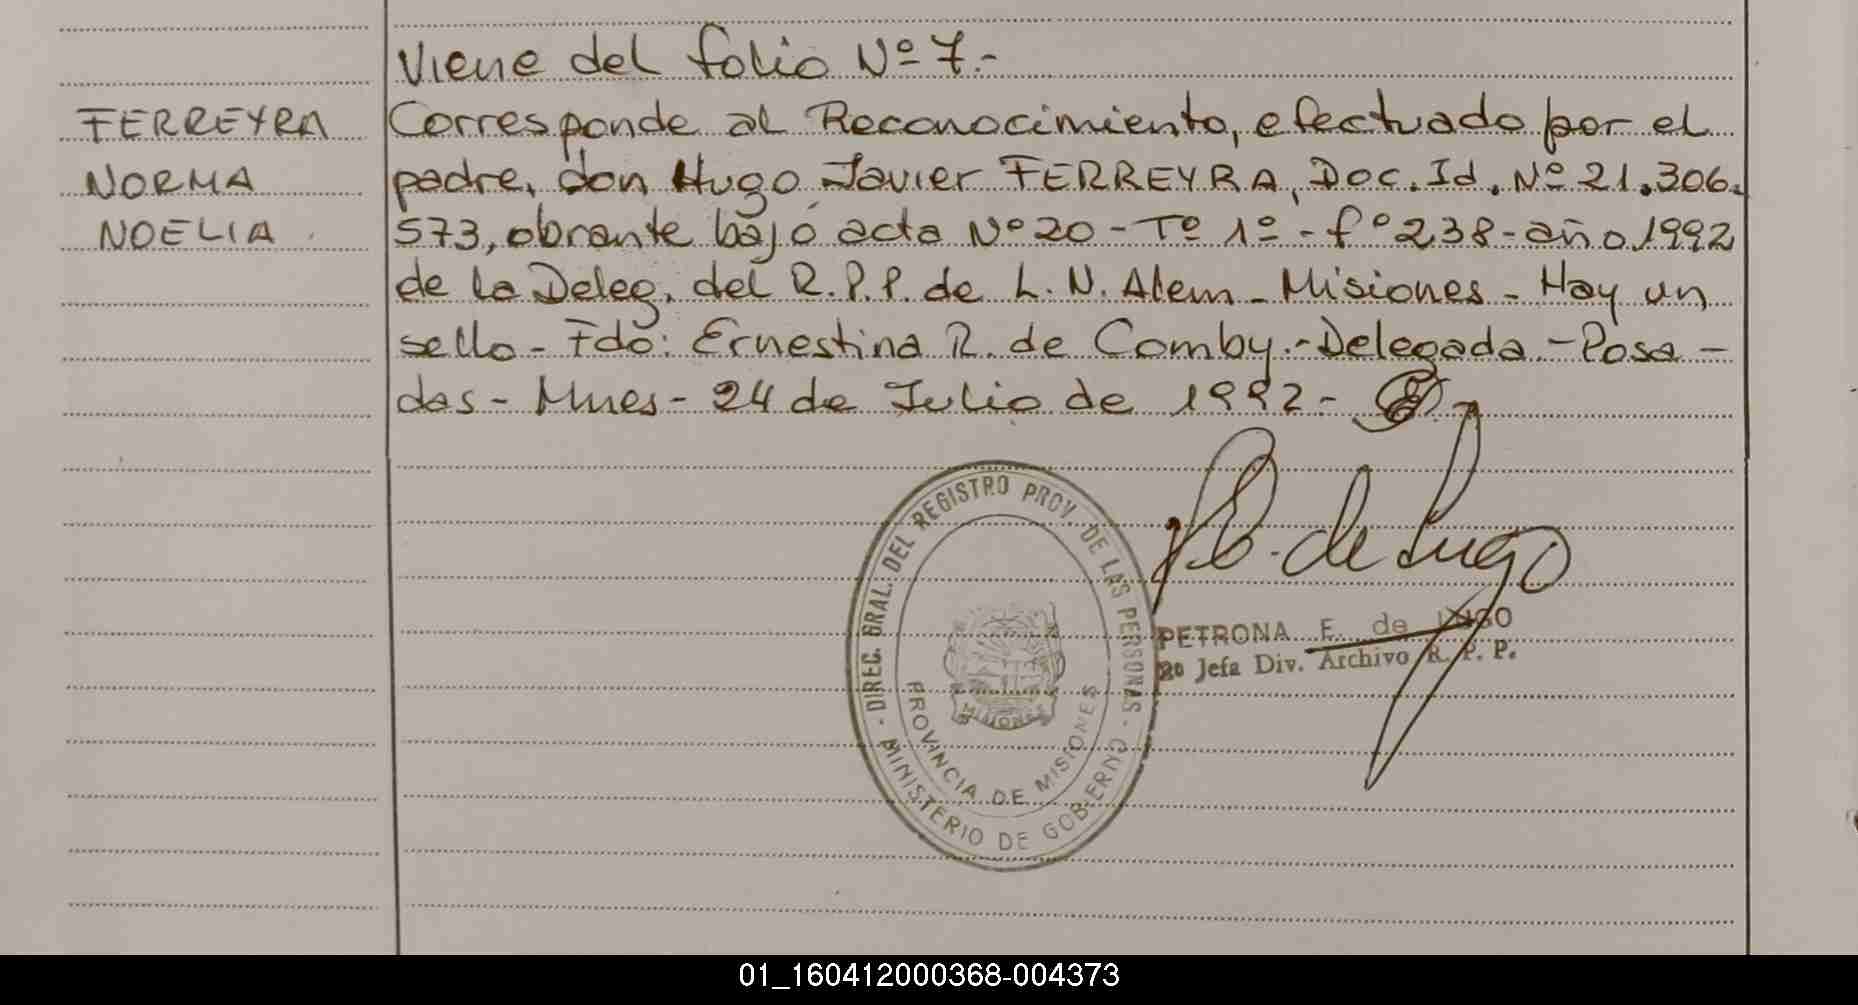 Viene del folio Nº 7.-
FERREYRA
NORMA
NOELIA
Corresponde al Reconocimiento, efectuado por el
padre, don Hugo Javier FERREYRA, Doc. Id. Nº 21.306.
573, obrante bajo acta Nº 20 - Tº 1º - fº 238 - año 1992
de la Deleg. del R.P.P. de L. N. Alem - Misiones - Hay un
sello - Fdo: Ernestina R. de Comby.- Delegada - Posa -
das - Mnes - 24 de Julio de 1992 -
- DIREC. GRAL. DEL REGISTRO PROV. DE LAS PERSONAS -
MINISTERIO DE GOBIERNO
PROVINCIA DE MISIONES
MISIONES
de Lugo
PETRONA E. de LUGO
2º Jefa Div. Archivo R. P. P.
01_160412000368-004373